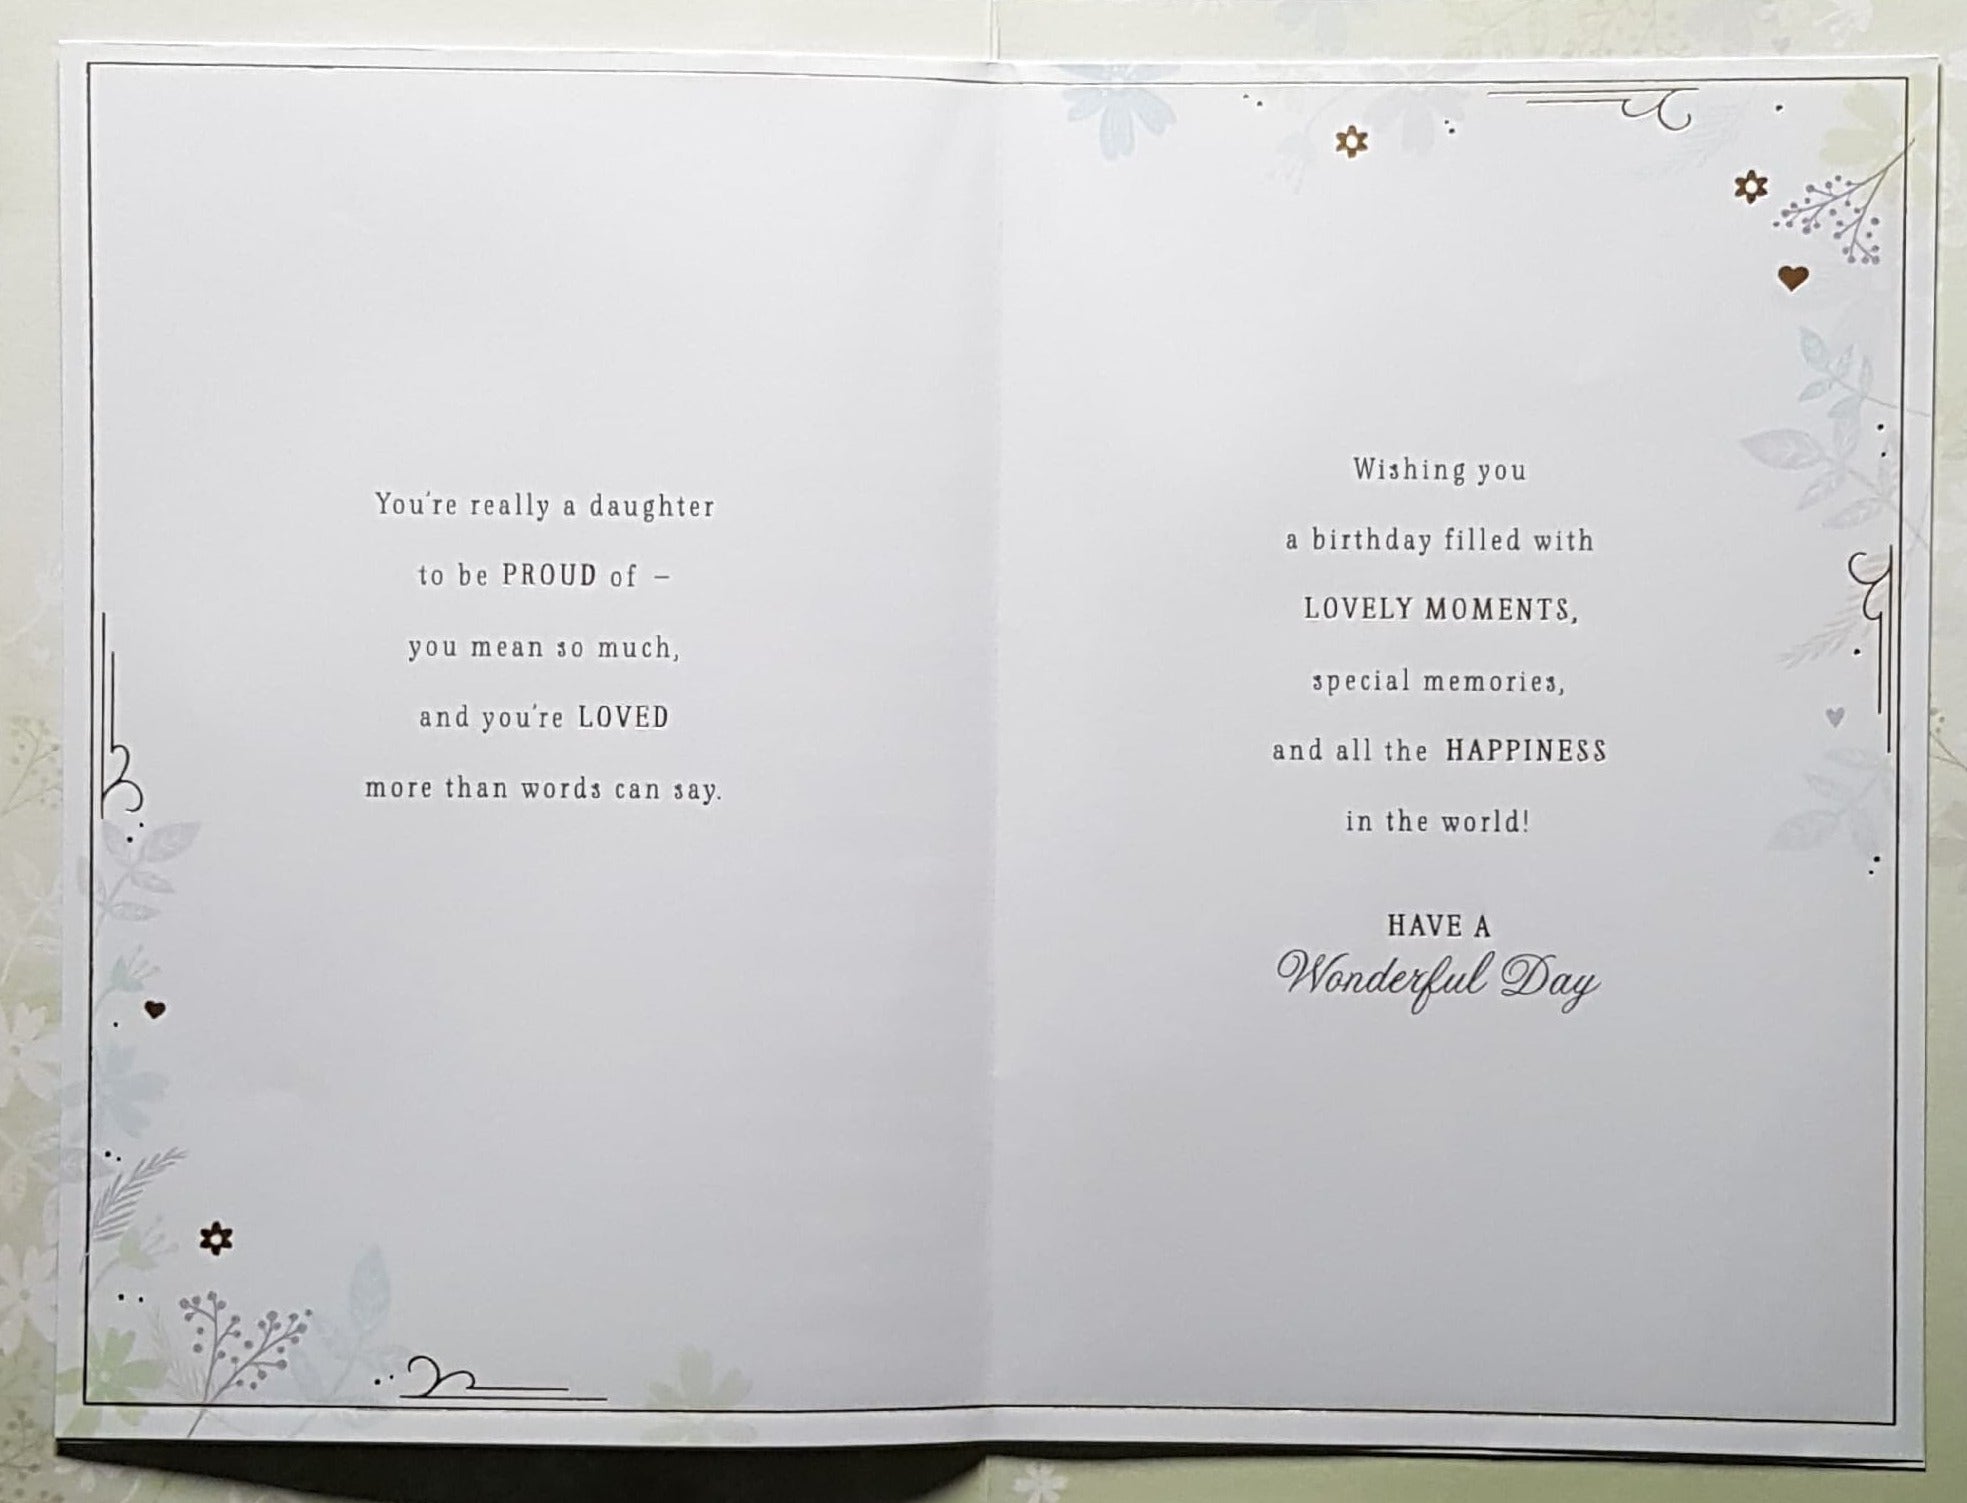 You're really a daughter
to be PROUD of –
you mean so much,
and you're LOVED
more than words can say.
Wishing you
a birthday filled with
LOVELY MOMENTS,
special memories,
and all the HAPPINESS
in the world!
HAVE A
Wonderful Day